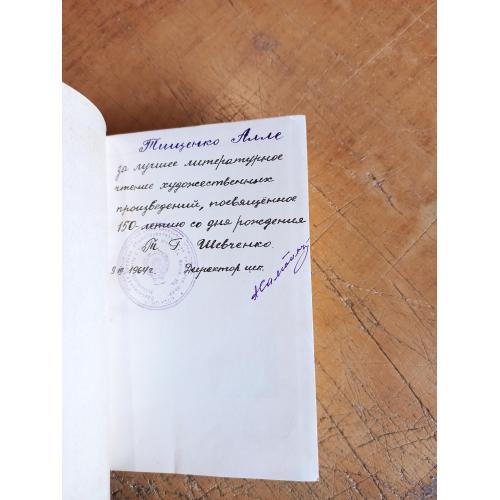 Тищенко Алле
за лучшее литературное
чтение художественных
произведений, посвящённое
150-летию со дня рождения
Т. Г. Шевченко.
1964г. Директор шк.